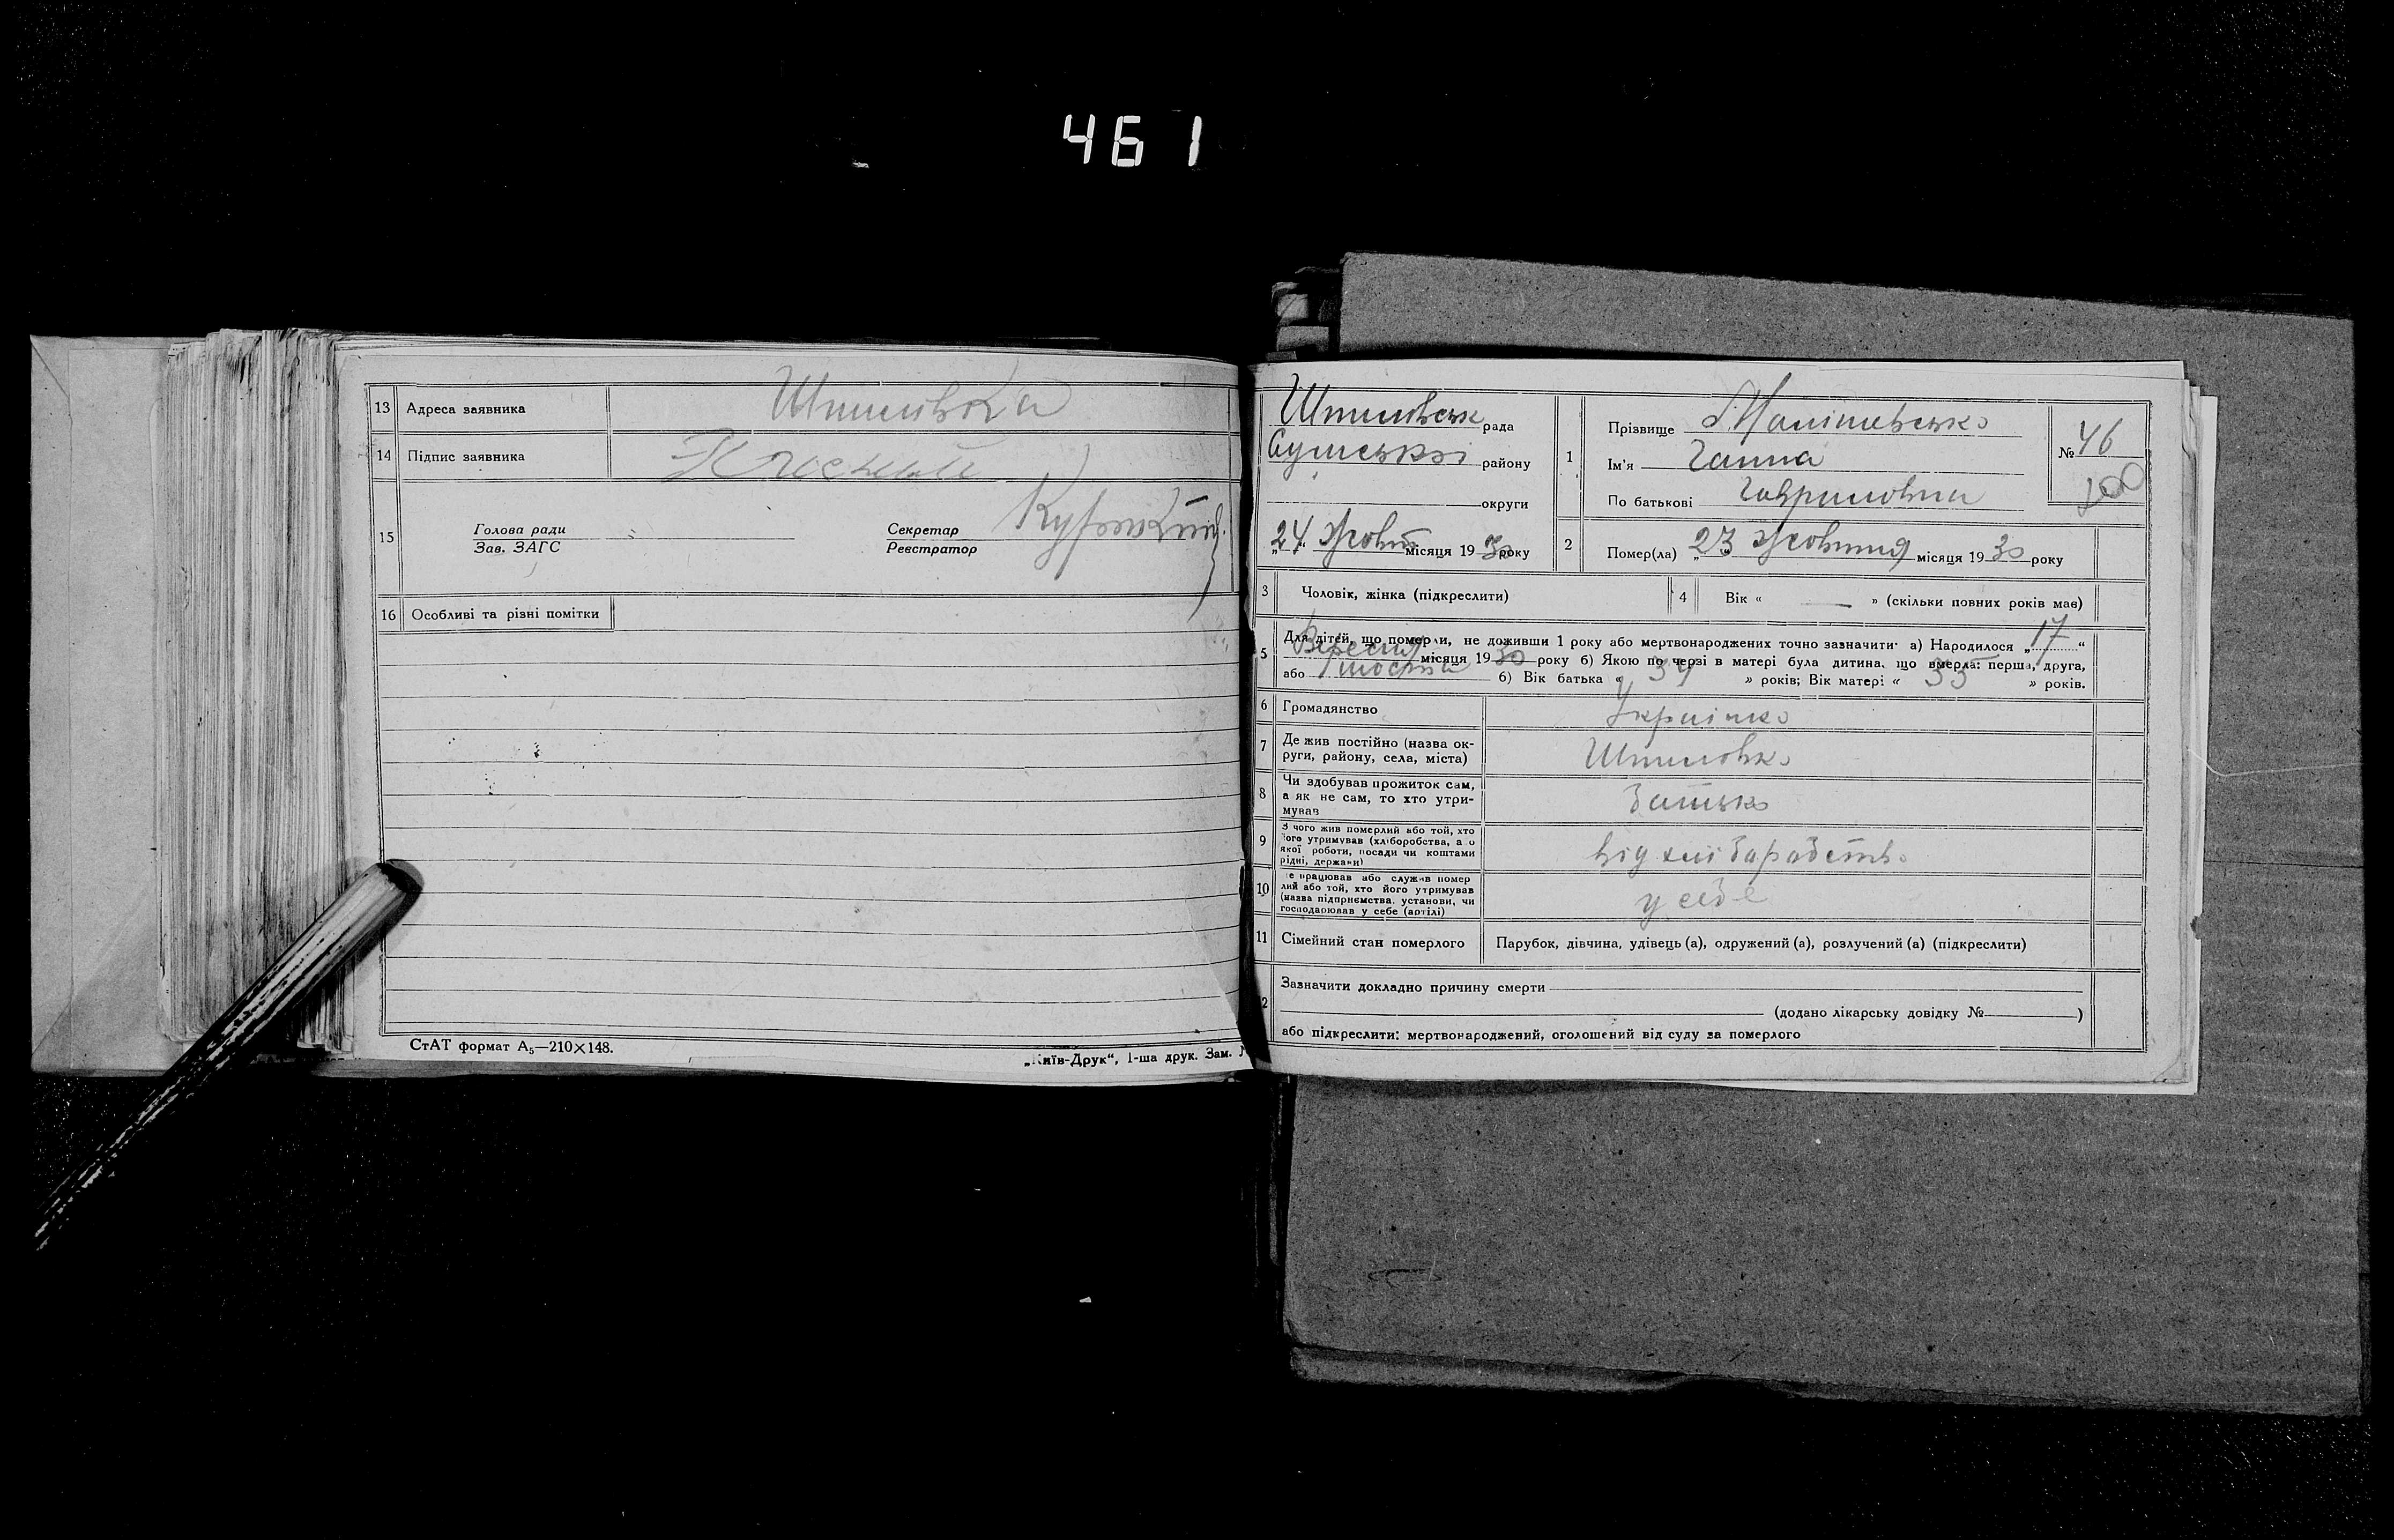 461
13 Адреса заявника Шпилівка
14 Підпис заявника
15 Голова ради
Зав. ЗАГС
Секретар
Реєстратор
16 Особливі та різні помітки
СтАТ формат А5—210×148.
„Київ-Друк“, 1-ша друк. Зам.
Шпилівськ рада
Сумської району
округи
„24“ Жовт місяця 1930 року
1 Прізвище
Ім'я Ганна
По батькові Гавриловна
№ 46
200
2 Помер(ла) „23 Жовтня місяця 1930 року
3 Чоловік, жінка (підкреслити)
4 Вік « — » (скільки повних років мав)
5 Для дітей, що померли, не доживши 1 року або мертвонароджених точно зазначити: а) Народилося „17“
Вересня місяця 1930 року б) Якою по черзі в матері була дитина, що вмерла: перша, друга,
або шоста 6) Вік батька « 39 » років; Вік матері « 35 » років.
6 Громадянство Українка
7 Де жив постійно (назва ок-
руги, району, села, міста) Шпиловка
8 Чи здобував прожиток сам,
а як не сам, то хто утри-
мував батько
9 З чого жив померлий або той, хто
його утримував (хліборобства, а о
якої роботи, посади чи коштами
рідні, держави) від хліборобства
10 Де працював або служив помер
лий або той, хто його утримував
(назва підприємства, установи, чи
господарював у себе (артілі) у себе
11 Сімейний стан померлого Парубок, дівчина, удівець (а), одружений (а), розлучений (а) (підкреслити)
12 Зазначити докладно причину смерти
(додано лікарську довідку № )
або підкреслити: мертвонароджений, оголошений від суду за померлого